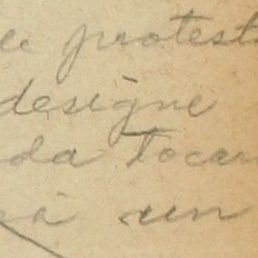 protest
designe
da tocan
á un